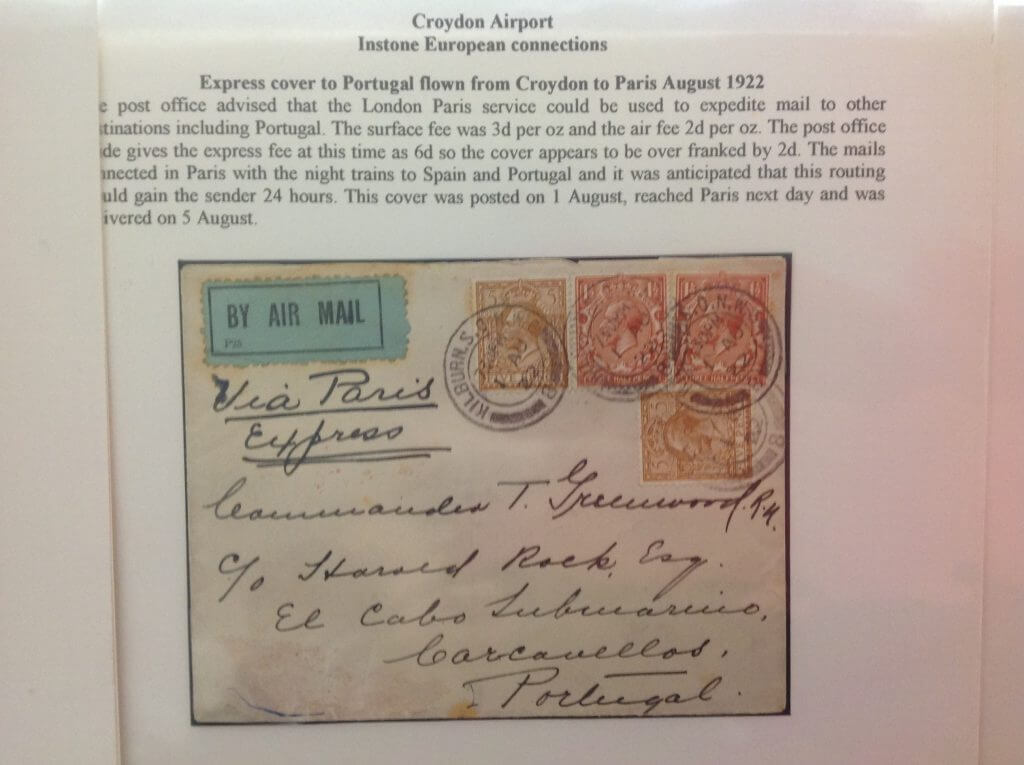 Croydon Airport
Instone European connections
Express cover to Portugal flown from Croydon to Paris August 1922
e post office advised that the London Paris service could be used to expedite mail to other
tinations including Portugal. The surface fee was 3d per oz and the air fee 2d per oz. The post office
de gives the express fee at this time as 6d so the cover appears to be over franked by 2d. The mails
nnected in Paris with the night trains to Spain and Portugal and it was anticipated that this routing
uld gain the sender 24 hours. This cover was posted on 1 August, reached Paris next day and was
ivered on 5 August.
BY AIR MAIL
KILBURN.S.O.N.W.
Via Paris
Express
Commander T. Greenwood. R.N.
c/o Harold Rock, Esq.
El Cabo Submarino,
Carcavellos,
Portugal.